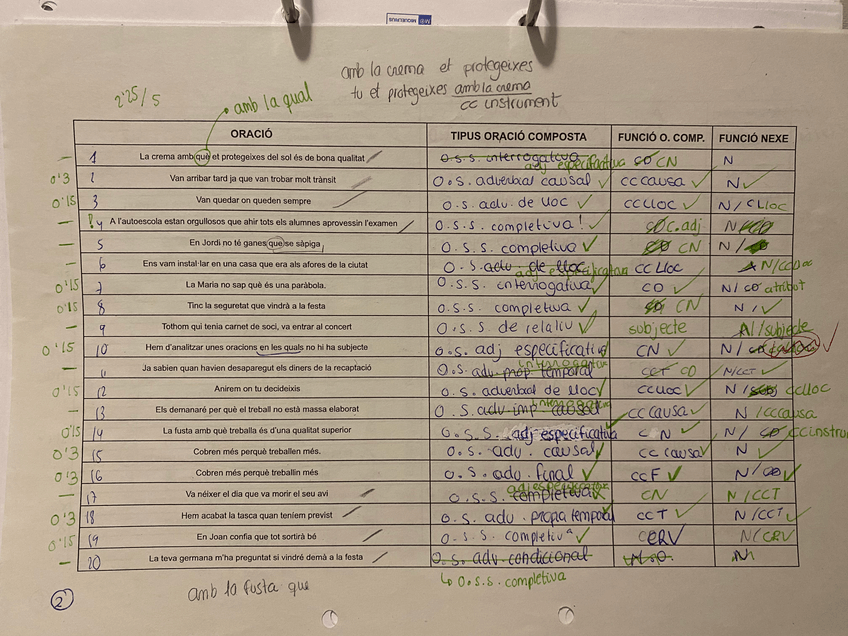 MIQUELRIUS
amb la crema et protegeixes
tu et protegeixes amb la crema
cc instrument
2'25/5
amb la qual
ORACIÓ TIPUS ORACIÓ COMPOSTA FUNCIÓ O. COMP. FUNCIÓ NEXE
— 1 La crema amb què et protegeixes del sol és de bona qualitat O.S.S. interrogativa adj especificativa CD CN N
0'3 2 Van arribar tard ja que van trobar molt trànsit O.S. adverbial causal CC causa N
0'15 3 Van quedar on queden sempre O.S. adv. de lloc CC Lloc N/CLloc
— !4 A l'autoescola estan orgullosos que ahir tots els alumnes aprovessin l'examen O.S.S. completiva! C.adj N
— 5 En Jordi no té ganes que se sàpiga O.S.S. completiva CN N/
— 6 Ens vam instal·lar en una casa que era als afores de la ciutat O.S. adv. de lloc adj especificativa CC Lloc
0'15 7 La Maria no sap què és una paràbola. O.S.S. interrogativa CD N/CD atribut
0'15 8 Tinc la seguretat que vindrà a la festa O.S.S. completiva CN N
— 9 Tothom qui tenia carnet de soci, va entrar al concert O.S. de relatiu subjecte N/subjecte
0'15 10 Hem d'analitzar unes oracions en les quals no hi ha subjecte O.S. adj especificativa CN N/
— 11 Ja sabien quan havien desaparegut els diners de la recaptació O.S. adv. prop. temporal interrogativa CCT CD N/CCT
0'15 12 Anirem on tu decideixis O.S. adverbial de lloc CC lloc N/ cclloc
— 13 Els demanaré per què el treball no està massa elaborat O.S. adv. imp. causal interrogativa CC causa N/cc causa
0'15 14 La fusta amb què treballa és d'una qualitat superior O.S.S. adj especificativa CN N/ CD CCinstru
0'3 15 Cobren més perquè treballen més. O.S. adv. causal CC causa N
0'3 16 Cobren més perquè treballin més. O.S. adv. final CCF N/
— 17 Va néixer el dia que va morir el seu avi O.S.S. completiva adj especificativa CN N/CCT
0'3 18 Hem acabat la tasca quan teníem previst O.S. adv. propia temporal CCT N/CCT
0'15 19 En Joan confia que tot sortirà bé O.S.S. completiva CRV N/CRV
— 20 La teva germana m'ha preguntat si vindré demà a la festa O.S. adv. condicional N
↳ O.S.S. completiva
2
amb la fusta que